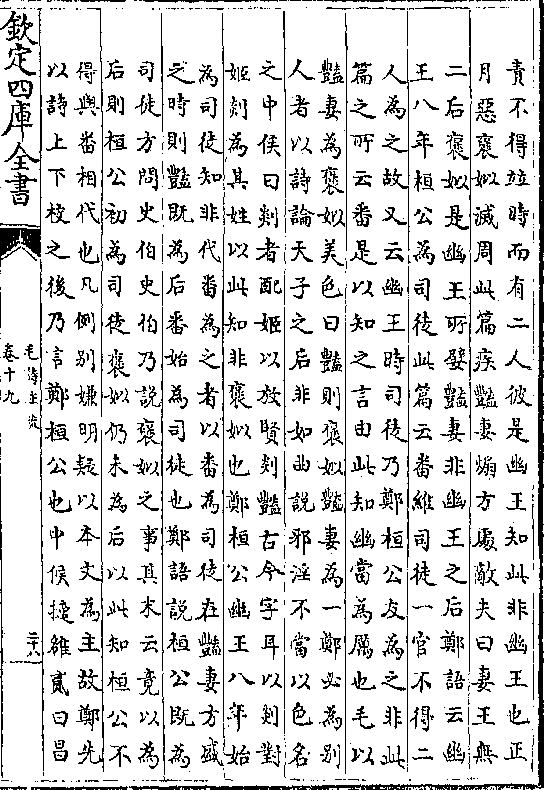 責不得竝時而有二人彼是幽王知此非幽王也正
月惡褒姒滅周此篇疾豔妻煽方處敵夫曰妻王無
二后褒姒是幽王所嬖豔妻非幽王之后鄭語云幽
王八年桓公為司徒此篇云番維司徒一官不得二
人為之故又云幽王時司徒乃鄭桓公友為之非此
篇之所云番是以知之言由此知幽當為厲也毛以
豔妻為褒姒美色曰豔則褒姒豔妻為一鄭必為别
人者以詩論天子之后非如曲說邪淫不當以色名
之中侯曰剡者配姬以放賢剡豔古今字耳以剡對
姬剡為其姓以此知非褒姒也鄭桓公幽王八年始
為司徒知非代番為之者以番為司徒在豔妻方盛
之時則豔既為后番始為司徒也鄭語説桓公既為
司徒方問史伯史伯乃說褒姒之事其末云竟以為
后則桓公初為司徒褒姒仍未為后以此知桓公不
得與番相代也凡例别嫌明疑以本文為主故鄭先
以詩上下校之後乃言鄭桓公也中候擿雒貳曰昌
欽定四庫全書
毛詩注疏
卷十九
二十八